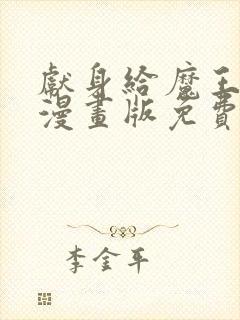 獻身給魔王
漫畫版免費
李金平